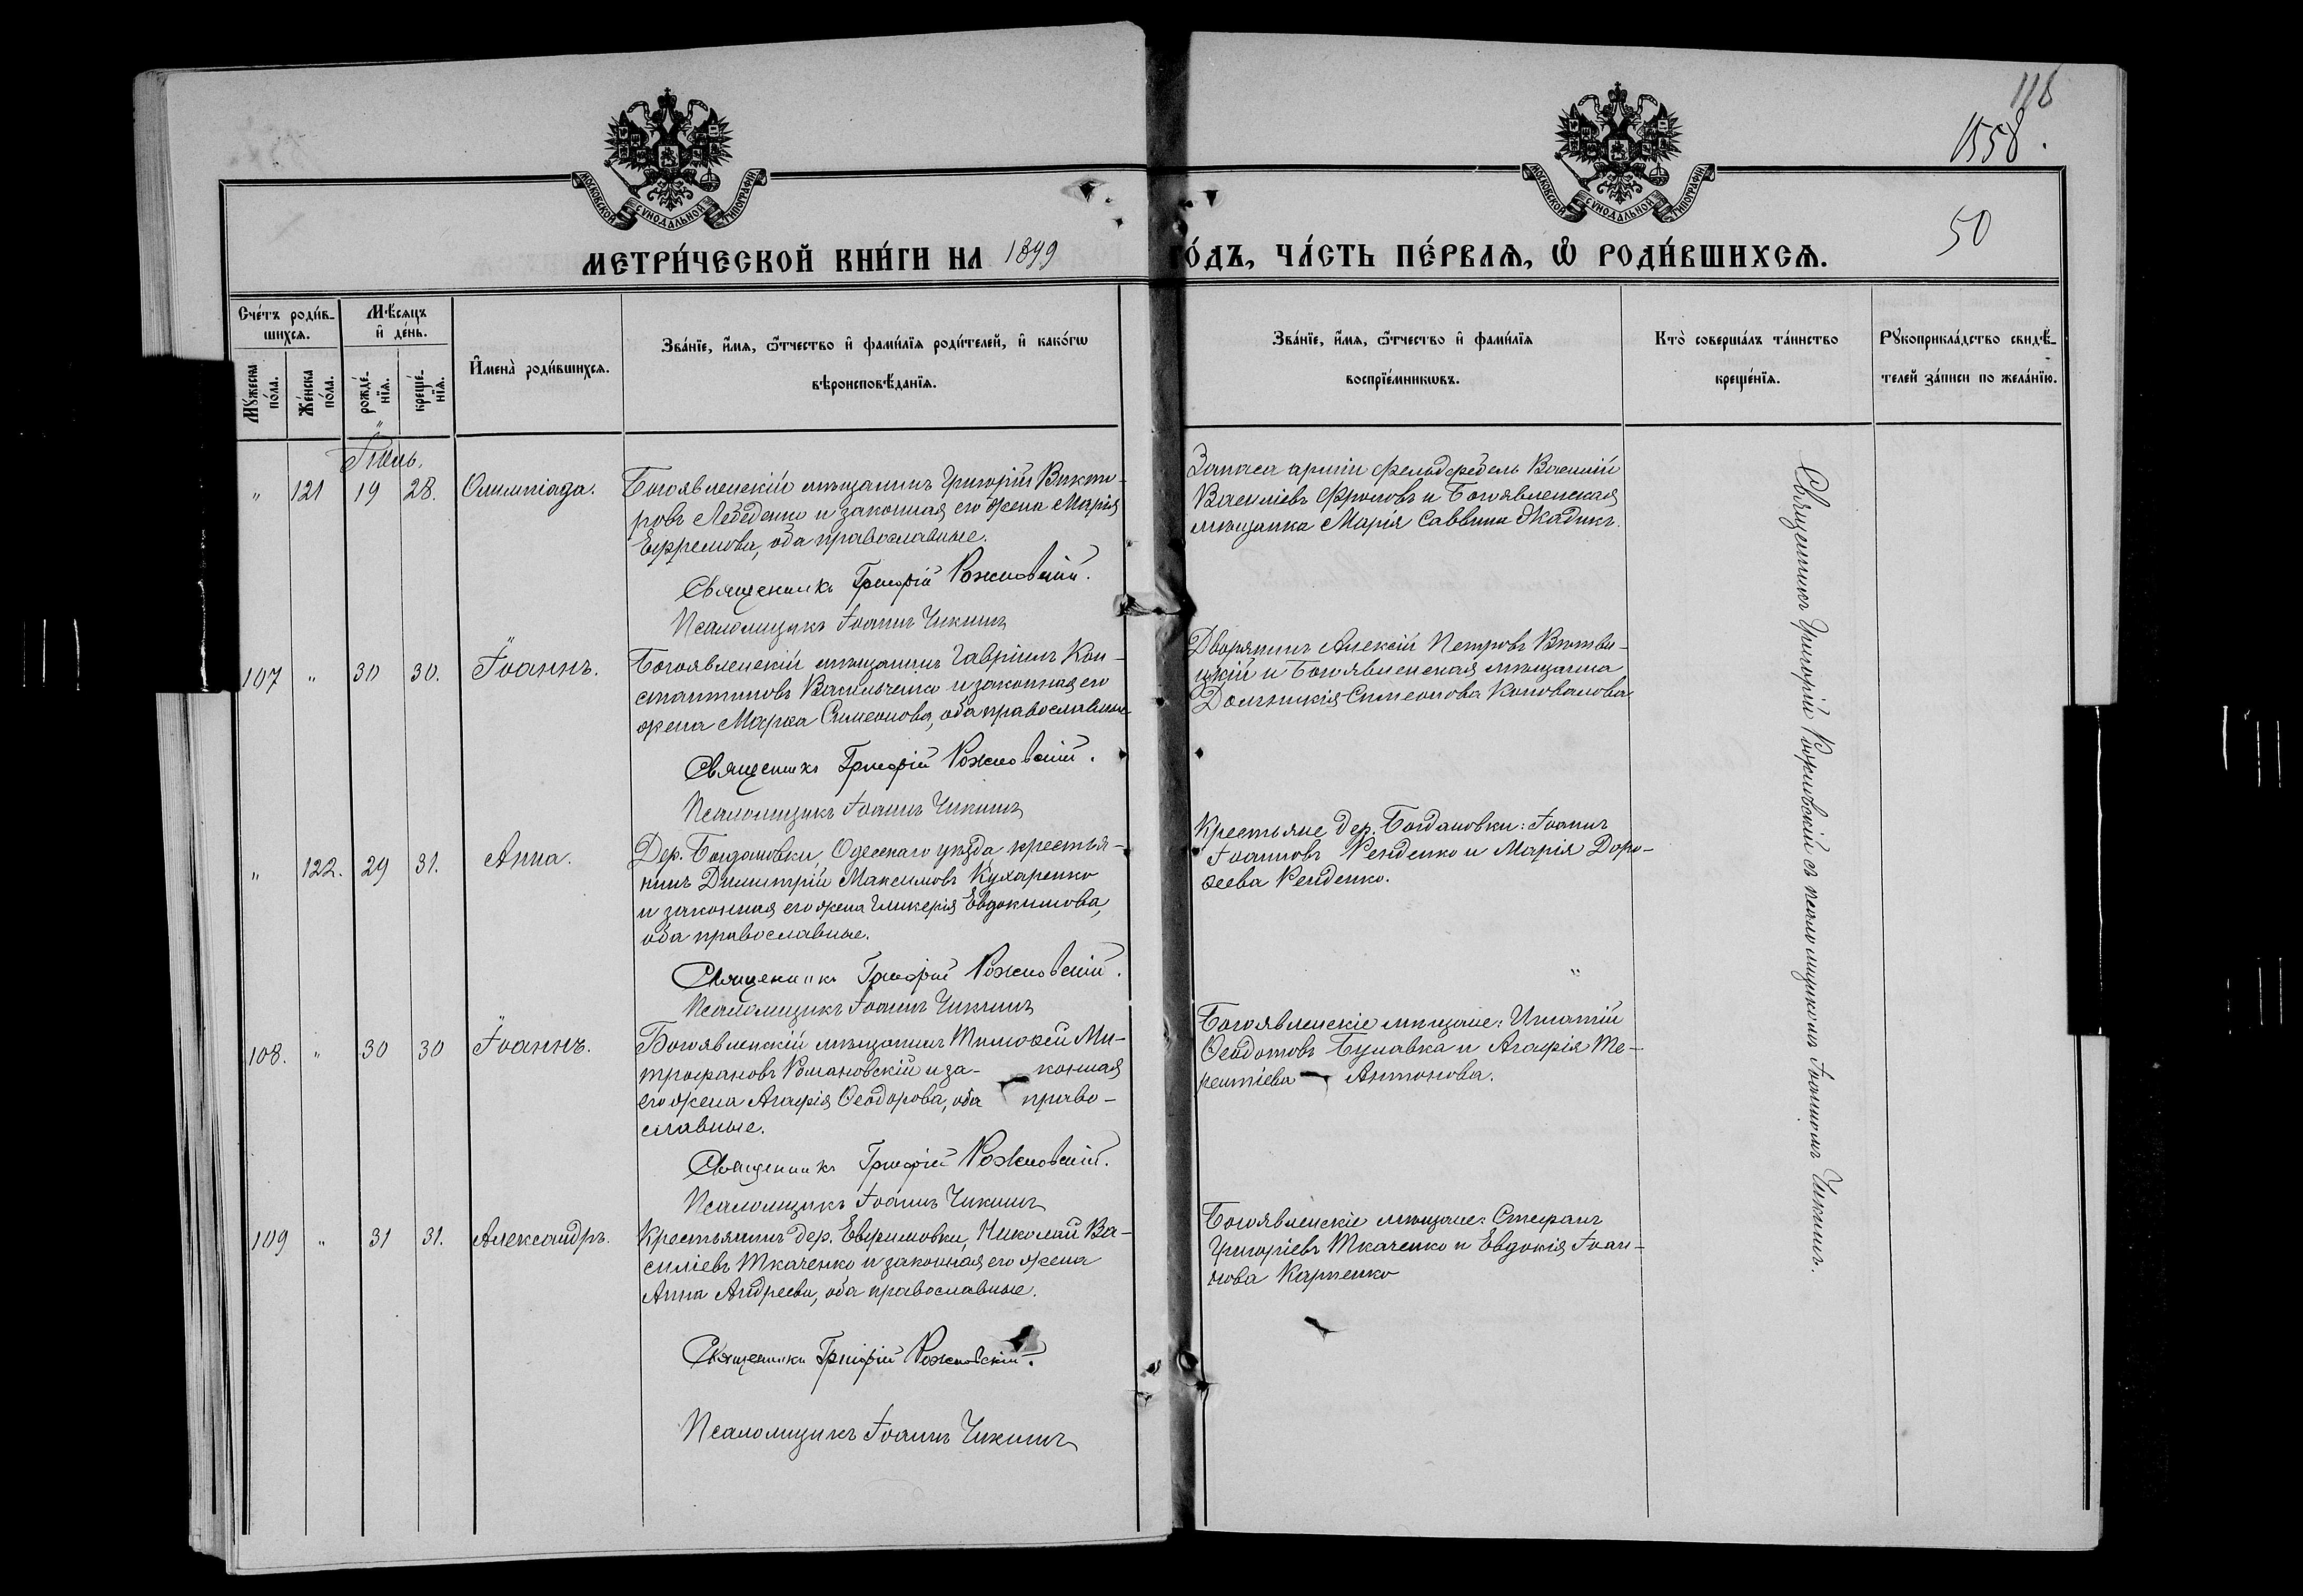 116
1558.
50
МОСКОВСКОЙ СѴНОДАЛЬНОЙ ТИПОГРАФІИ
МОСКОВСКОЙ СѴНОДАЛЬНОЙ ТИПОГРАФІИ
МЕТРИ́ЧЕСКОЙ КНИ́ГИ НА 1899 ГО́ДЪ, ЧА́СТЬ ПЕ́РВАѦ, Ѽ РОДИ́ВШИХСѦ.
Сче́тъ роди́в-
шихсѧ.
Мꙋ́жеска по́ла.
Же́нска по́ла.
Мѣ́сяцъ
и҆ де́нь.
рожде́-нїѧ.
креще́-нїѧ.
И҆мена̀ роди́вшихсѧ.
Зва́нїе, и҆́мѧ, ѻ҆́тчество и҆ фами́лїѧ роди́телей, и҆ како́гѡ
вѣроисповѣ́данїѧ.
Зва́нїе, и҆́мѧ, ѻ҆́тчество и҆ фами́лїѧ
воспрїе́мникѡвъ.
Кто̀ соверша́лъ та́инство
креще́нїѧ.
Рꙋкоприкла́дство свидѣ́-
телей за́писи по жела́нїю.
Іюль.
" 121 19 28. Олимпіада.
Богоявленскій мѣщанинъ Григорій Викто-
ровъ Лебеденко и законная его жена Марія
Ефремова, оба православные.
Священникъ Григорій Рожновскій.
Псаломщикъ Іоаннъ Чикинъ
Запаса арміи фельдфебель Василій
Василіевъ Фроловъ и Богоявленская
мѣщанка Марія Саввина Жадикъ.
107 " 30 30. Іоаннъ.
Богоявленскій мѣщанинъ Гавріилъ Кон-
стантиновъ Васильченко и законная его
жена Марѳа Симеонова, оба православные
Священникъ Григорій Рожновскій.
Псаломщикъ Іоаннъ Чикинъ
Дворянинъ Алексій Петровъ Витви-
цкій и Богоявленская мѣщанка
Домникія Симеонова Коновалова
" 122. 29 31. Анна.
Дер. Богдановки, Одесскаго уѣзда крестья-
нинъ Димитрій Максимовъ Кухаренко
и законная его жена Гликерія Евдокимова,
оба православные.
Священникъ Григорій Рожновскій.
Псаломщикъ Іоаннъ Чикинъ
Крестьяне дер. Богдановки: Іоаннъ
Іоанновъ Ренденко и Марія Доро-
ѳеева Ренденко.
108. " 30 30 Іоаннъ.
Богоявленскій мѣщанинъ Тимоѳей Ми-
трофановъ Романовскій и за- конная
его жена Агафія Ѳеодорова, оба право-
славные.
Священникъ Григорій Рожновскій.
Псаломщикъ Іоаннъ Чикинъ
Богоявленскіе мѣщане: Игнатій
Ѳеодотовъ Булавка и Агафія Те-
рентіева Антонова.
109 " 31 31. Александръ.
Крестьянинъ дер. Евфимовки, Николай Ва-
силіевъ Ткаченко и законная его жена
Анна Андреева, оба православные.
Священникъ Григорій Рожновскій.
Псаломщикъ Іоаннъ Чикинъ
Богоявленскіе мѣщане: Стефанъ
Григоріевъ Ткаченко и Евдокія Іоан-
нова Карпенко
Священникъ Григорій Рожновскій съ псаломщикомъ Іоанномъ Чикинъ.